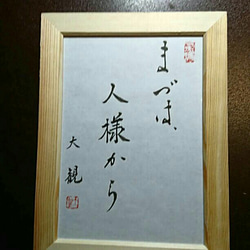 まづは、
人様から
大観